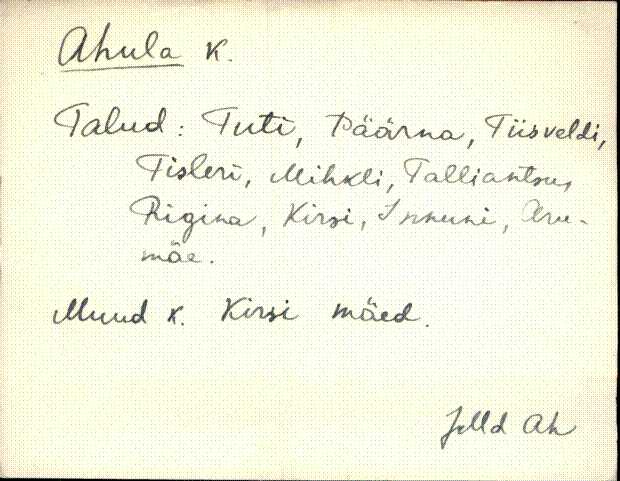 Ahula K.
Talud: Tuti, Päärna, Tiisveldi,
Tisleri, Mihkli, Talliantsu,
Rigina, Kirsi, Innuni, Aru-
mäe.
Muud k. Kirsi mäed.
Ah